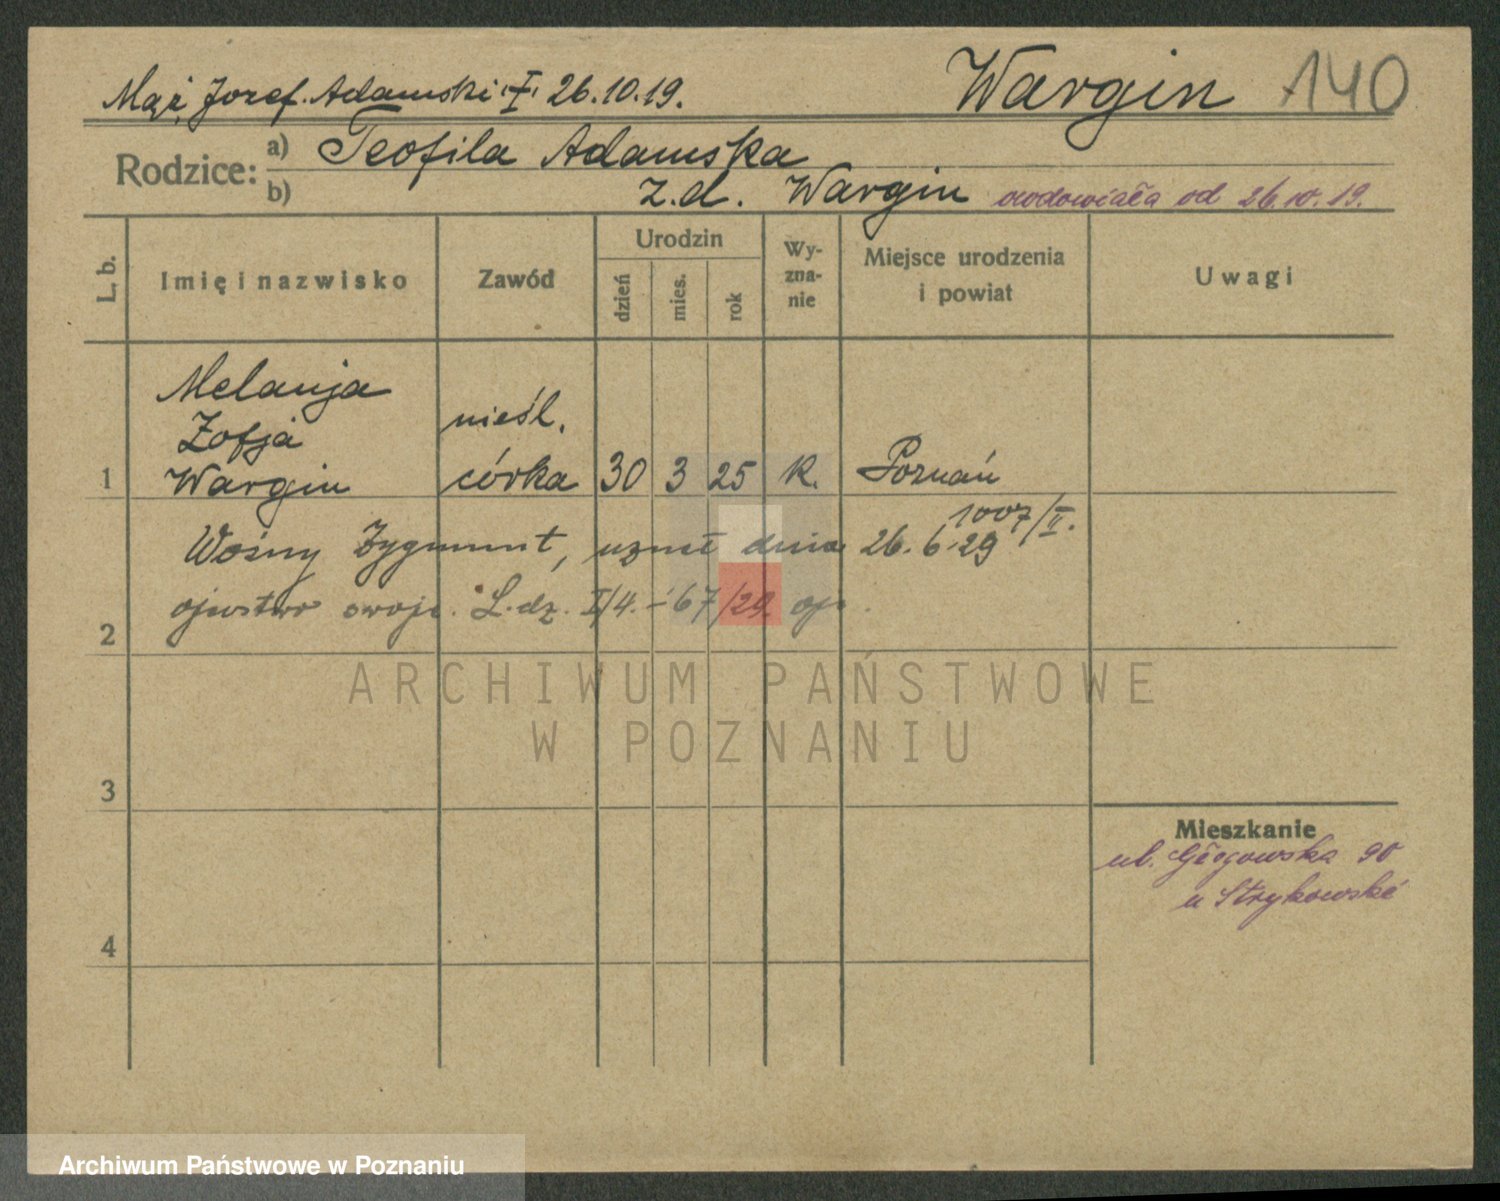 Mąż Jozef Adamski † 26.10.19.
Wargin 140
Rodzice: a) Teofila Adamska
b) z.d. Wargin owdowiała od 26.10.19.
L. b. Imię i nazwisko Zawód Urodzin dzień mies. rok Wyznanie Miejsce urodzenia i powiat Uwagi
Melanja
Zofja nieśl.
1 Wargin córka 30 3 25 k. Poznań
1007/II.
Woźny Zygmunt, uznał dnia 26.6.29
2 ojcostwo swoje. L.dz. I/4.-67/29.
3
Mieszkanie
ul. Głogowska 90
u Strykowski
4
ARCHIWUM PAŃSTWOWE
W POZNANIU
Archiwum Państwowe w Poznaniu